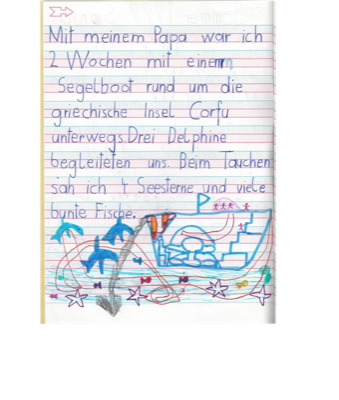 Mit meinem Papa war ich
2 Wochen mit einem
Segelboot rund um die
griechische Insel Corfu
unterwegs. Drei Delphine
begleiteten uns. Beim Tauchen
sah ich 4 Seesterne und viele
bunte Fische.